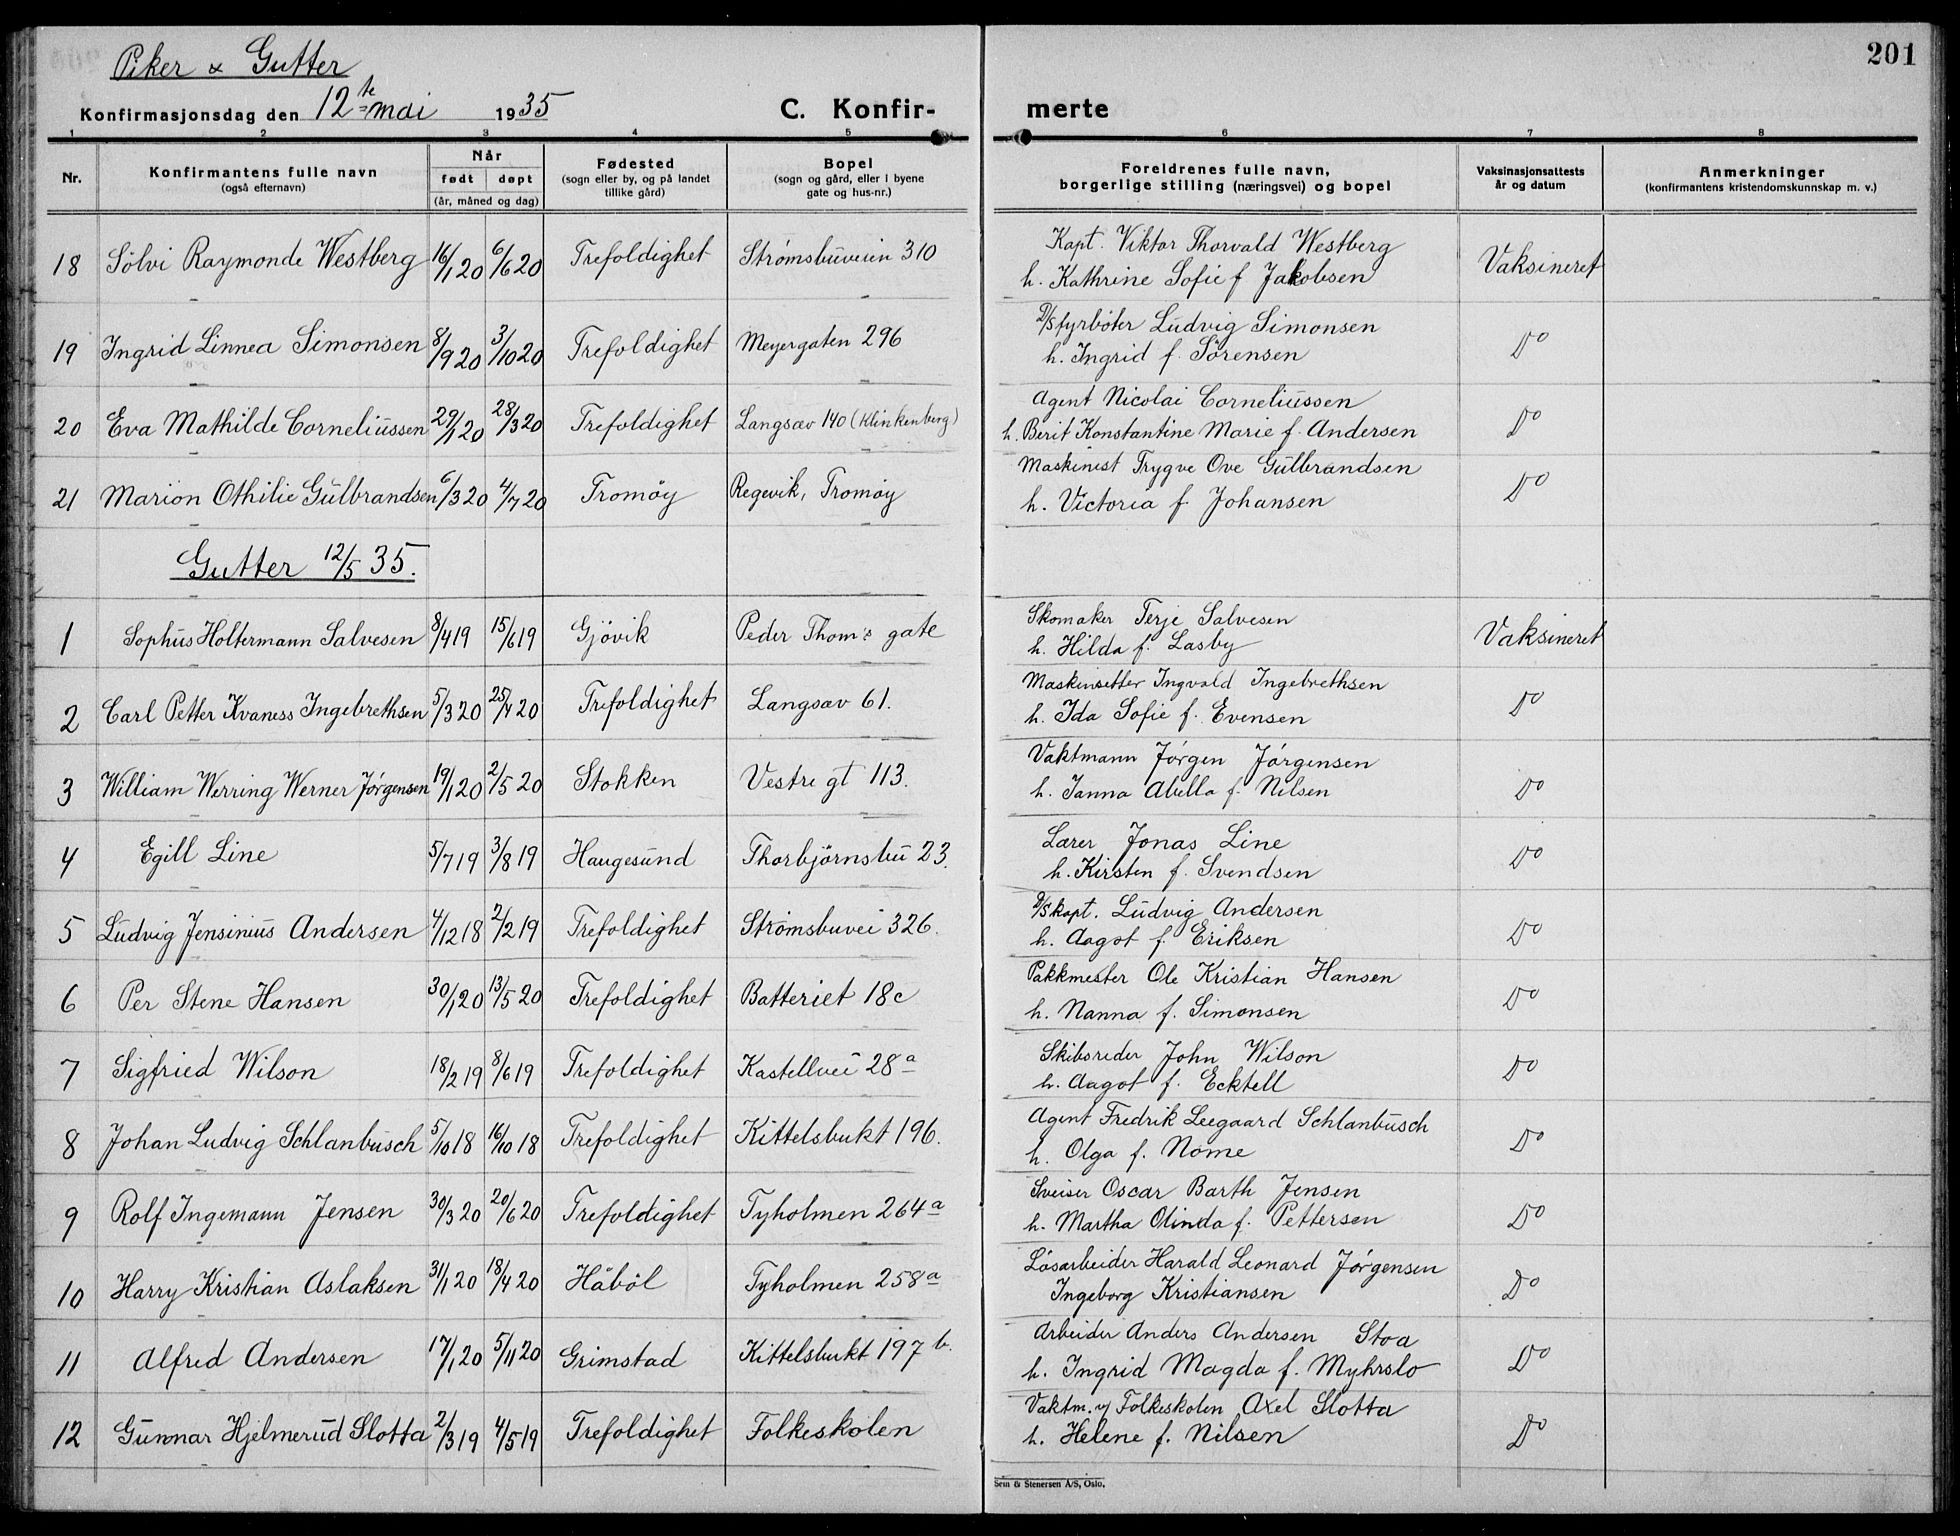 Piker & Gutter
201
Konfirmasjonsdag den 12te mai 1935 C. Konfir- merte
1 2 3 4 5 6 7 8
Nr. Konfirmantens fulle navn (også efternavn) Når født døpt (år, måned og dag) Fødested (sogn eller by, og på landet tillike gård) Bopel (sogn og gård, eller i byene gate og hus-nr.) Foreldrenes fulle navn, borgerlige stilling (næringsvei) og bopel Vaksinasjonsattests år og datum Anmerkninger (konfirmantens kristendomskunnskap m. v.)
18 Sölvi Raymonde Westberg 16/1 20 6/6 20 Trefoldighet Strømsbuveien 310 Kapt. Viktor Thorvald Westberg Vaksineret
h. Kathrine Sofie f Jakobsen
19 Ingrid Linnea Simonsen 8/9 20 3/10 20 Trefoldighet Meyergaten 296 D/S fyrböter Ludvig Simonsen Do
h. Ingrid f. Sörensen
20 Eva Mathilde Corneliussen 29/1 20 28/3 20 Trefoldighet Langsæv 140 (Klinkenberg) Agent Nicolai Corneliussen Do
h. Berit Konstantine Marie f. Andersen
21 Marion Othilie Gulbrandsen 6/3 20 4/7 20 Tromøy Regevik, Tromøy Maskinist Trygve Ove Gulbrandsen Do
h. Victoria f. Johansen
Gutter 12/5 35.
1 Sophus Holtermann Salvesen 8/4 19 15/6 19 Gjövik Peder Thom's gate Skomaker Terje Salvesen Vaksineret
h. Hilda f. Lasby
2 Carl Petter Kvaness Ingebrethsen 5/3 20 25/4 20 Trefoldighet Langsæv 61. Maskinsetter Ingvald Ingebrethsen Do
h. Ida Sofie f. Evensen
3 William Werring Werner Jørgensen 19/1 20 2/5 20 Stokken Vestre gt 113. Vaktmann Jørgen Jørgensen Do
h. Janna Abella f. Nilsen
4 Egill Line 5/7 19 3/8 19 Haugesund Thorbjørnsbu 23. Lærer Jonas Line Do
h. Kirsten f. Svendsen
5 Ludvig Jensinius Andersen 4/12 18 2/2 19 Trefoldighet Strømsbuvei 326. D/S kapt. Ludvig Andersen Do
h. Aagot f. Eriksen
6 Per Stene Hansen 30/1 20 13/5 20 Trefoldighet Batteriet 18c Pakkmester Ole Kristian Hansen Do
h. Nanna f. Simonsen
7 Sigfried Wilson 18/2 19 8/6 19 Trefoldighet Kastellvei 28a Skibsreder John Wilson Do
h. Aagot f. Ecktell
8 Johan Ludvig Schlanbusch 5/10 18 16/10 18 Trefoldighet Kittelsbukt 196. Agent Fredrik Leegaard Schlanbusch Do
h. Olga f. Nome
9 Rolf Ingemann Jensen 30/3 20 20/6 20 Trefoldighet Tyholmen 264a Sveiser Oscar Barth Jensen Do
h. Martha Olinda f. Pettersen
10 Harry Kristian Aslaksen 31/1 20 18/4 20 Håböl Tyholmen 258a Lösarbeider Harald Leonard Jørgensen Do
Ingeborg Kristiansen
11 Alfred Andersen 17/1 20 5/11 20 Grimstad Kittelsbukt 197 b. Arbeider Anders Andersen Stoa Do
h. Ingrid Magda f. Myhrslo
12 Gunnar Hjelmerud Slotta 2/3 19 4/5 19 Trefoldighet Folkeskolen Vaktm. v/ Folkeskolen Axel Slotta Do
h. Helene f. Nilsen
Sem & Stenersen A/S, Oslo.